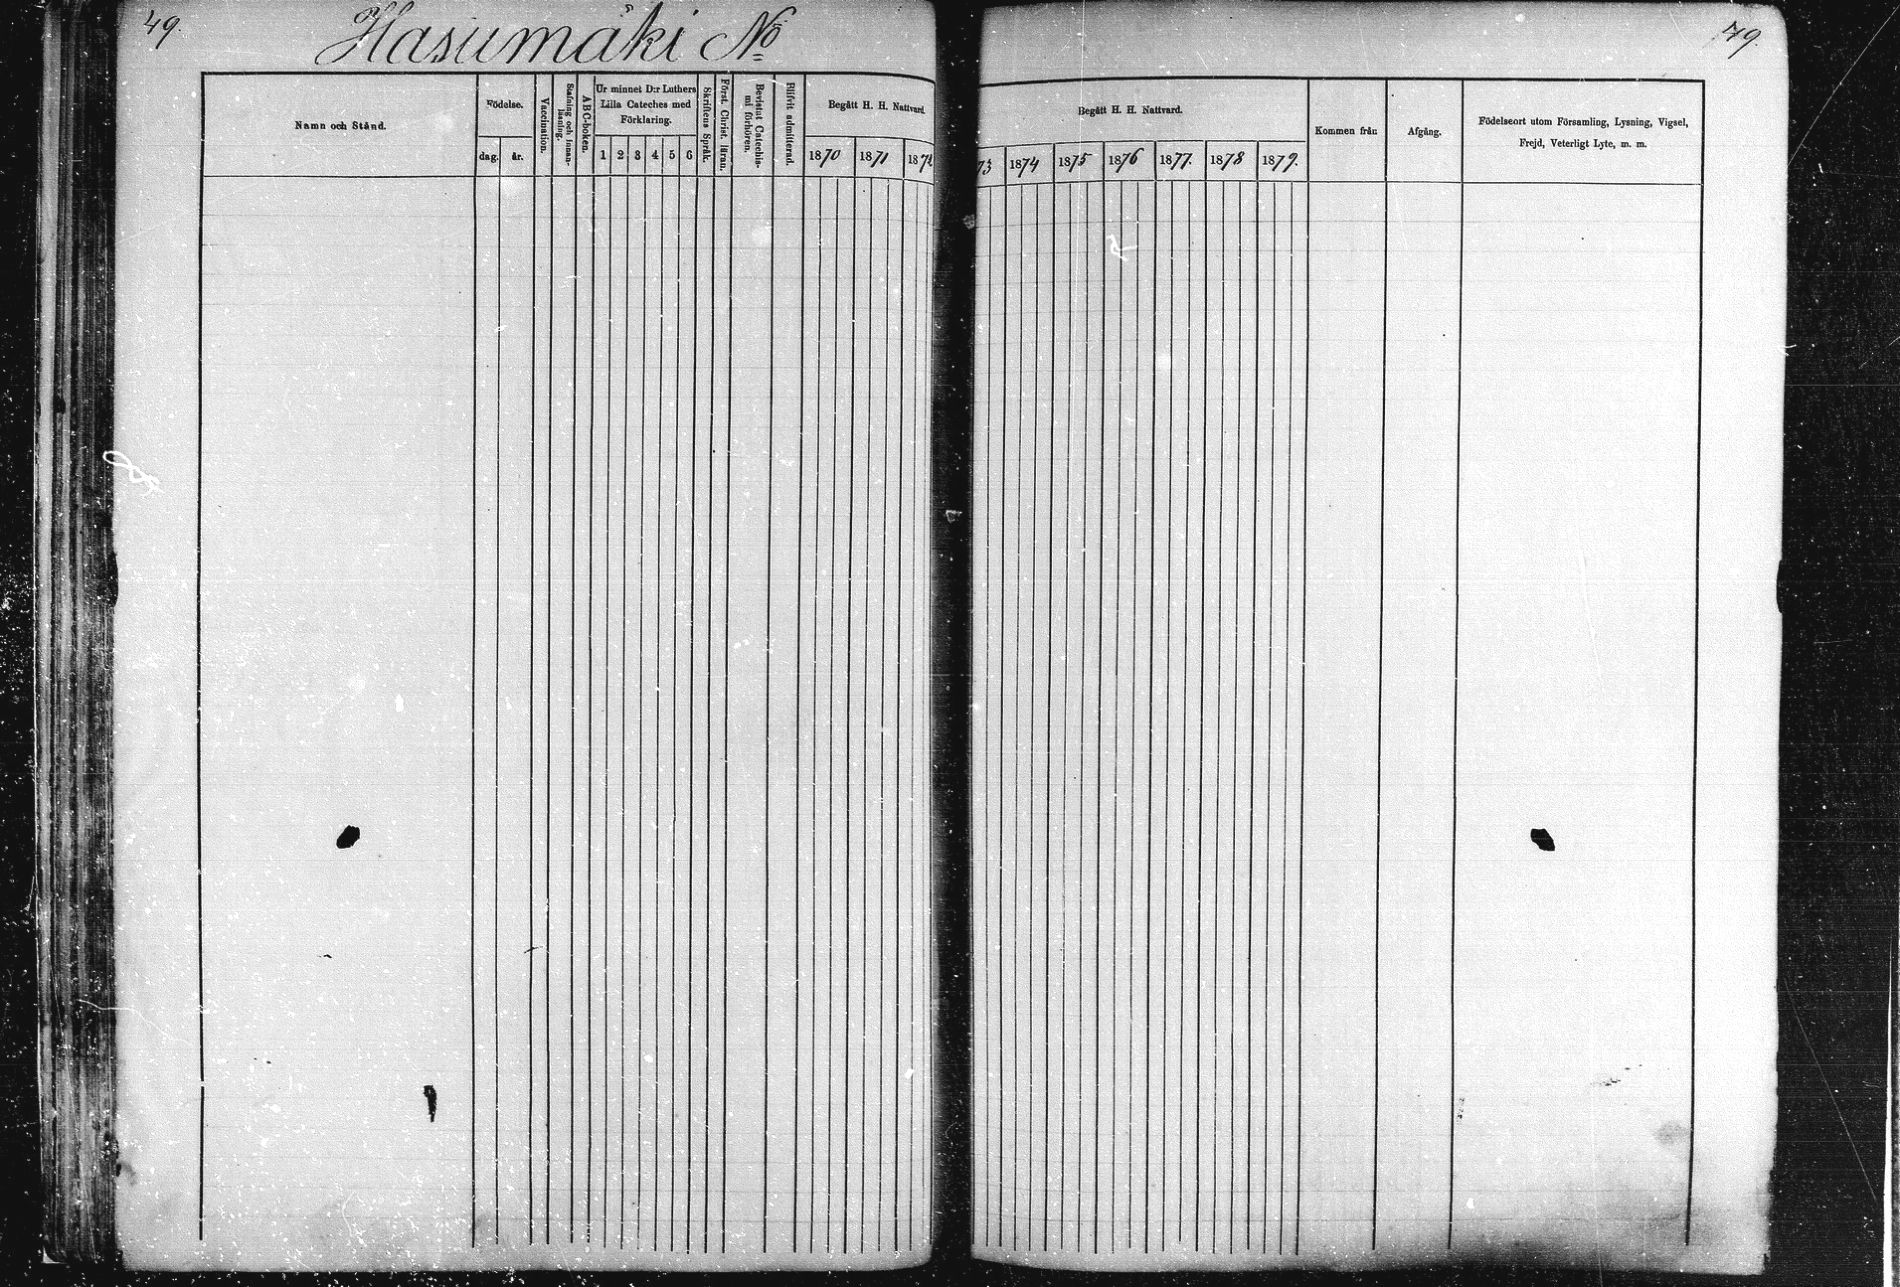 49.
Hasumäki No
49.
Namn och Stånd.
Födelse.
dag.
år.
Vaccination.
Stafning och innan-
läsning.
ABC-boken.
Ur minnet D:r Luthers
Lilla Cateches med
Förklaring.
1 2 3 4 5 6
Skriftens Språk.
Först. Christ. läran.
Bevistat Catechis-
mi förhören.
Blifvit admitterad.
Begått H. H. Nattvard.
1870 1871 1872
Begått H. H. Nattvard.
73 1874 1875 1876 1877. 1878 1879.
Kommen från
Afgång.
Födelseort utom Församling, Lysning, Vigsel,
Frejd, Veterligt Lyte, m. m.